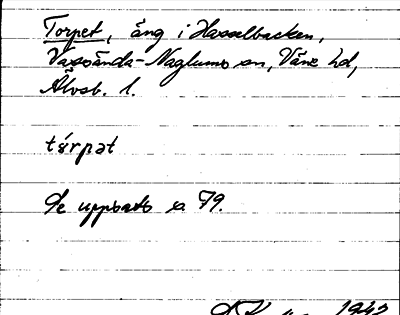 Torpet, äng i Hasselbacken,
Vassända-Naglums sn, Väne hd,
Älvsb. l.
Se uppsats s. 79.
1942